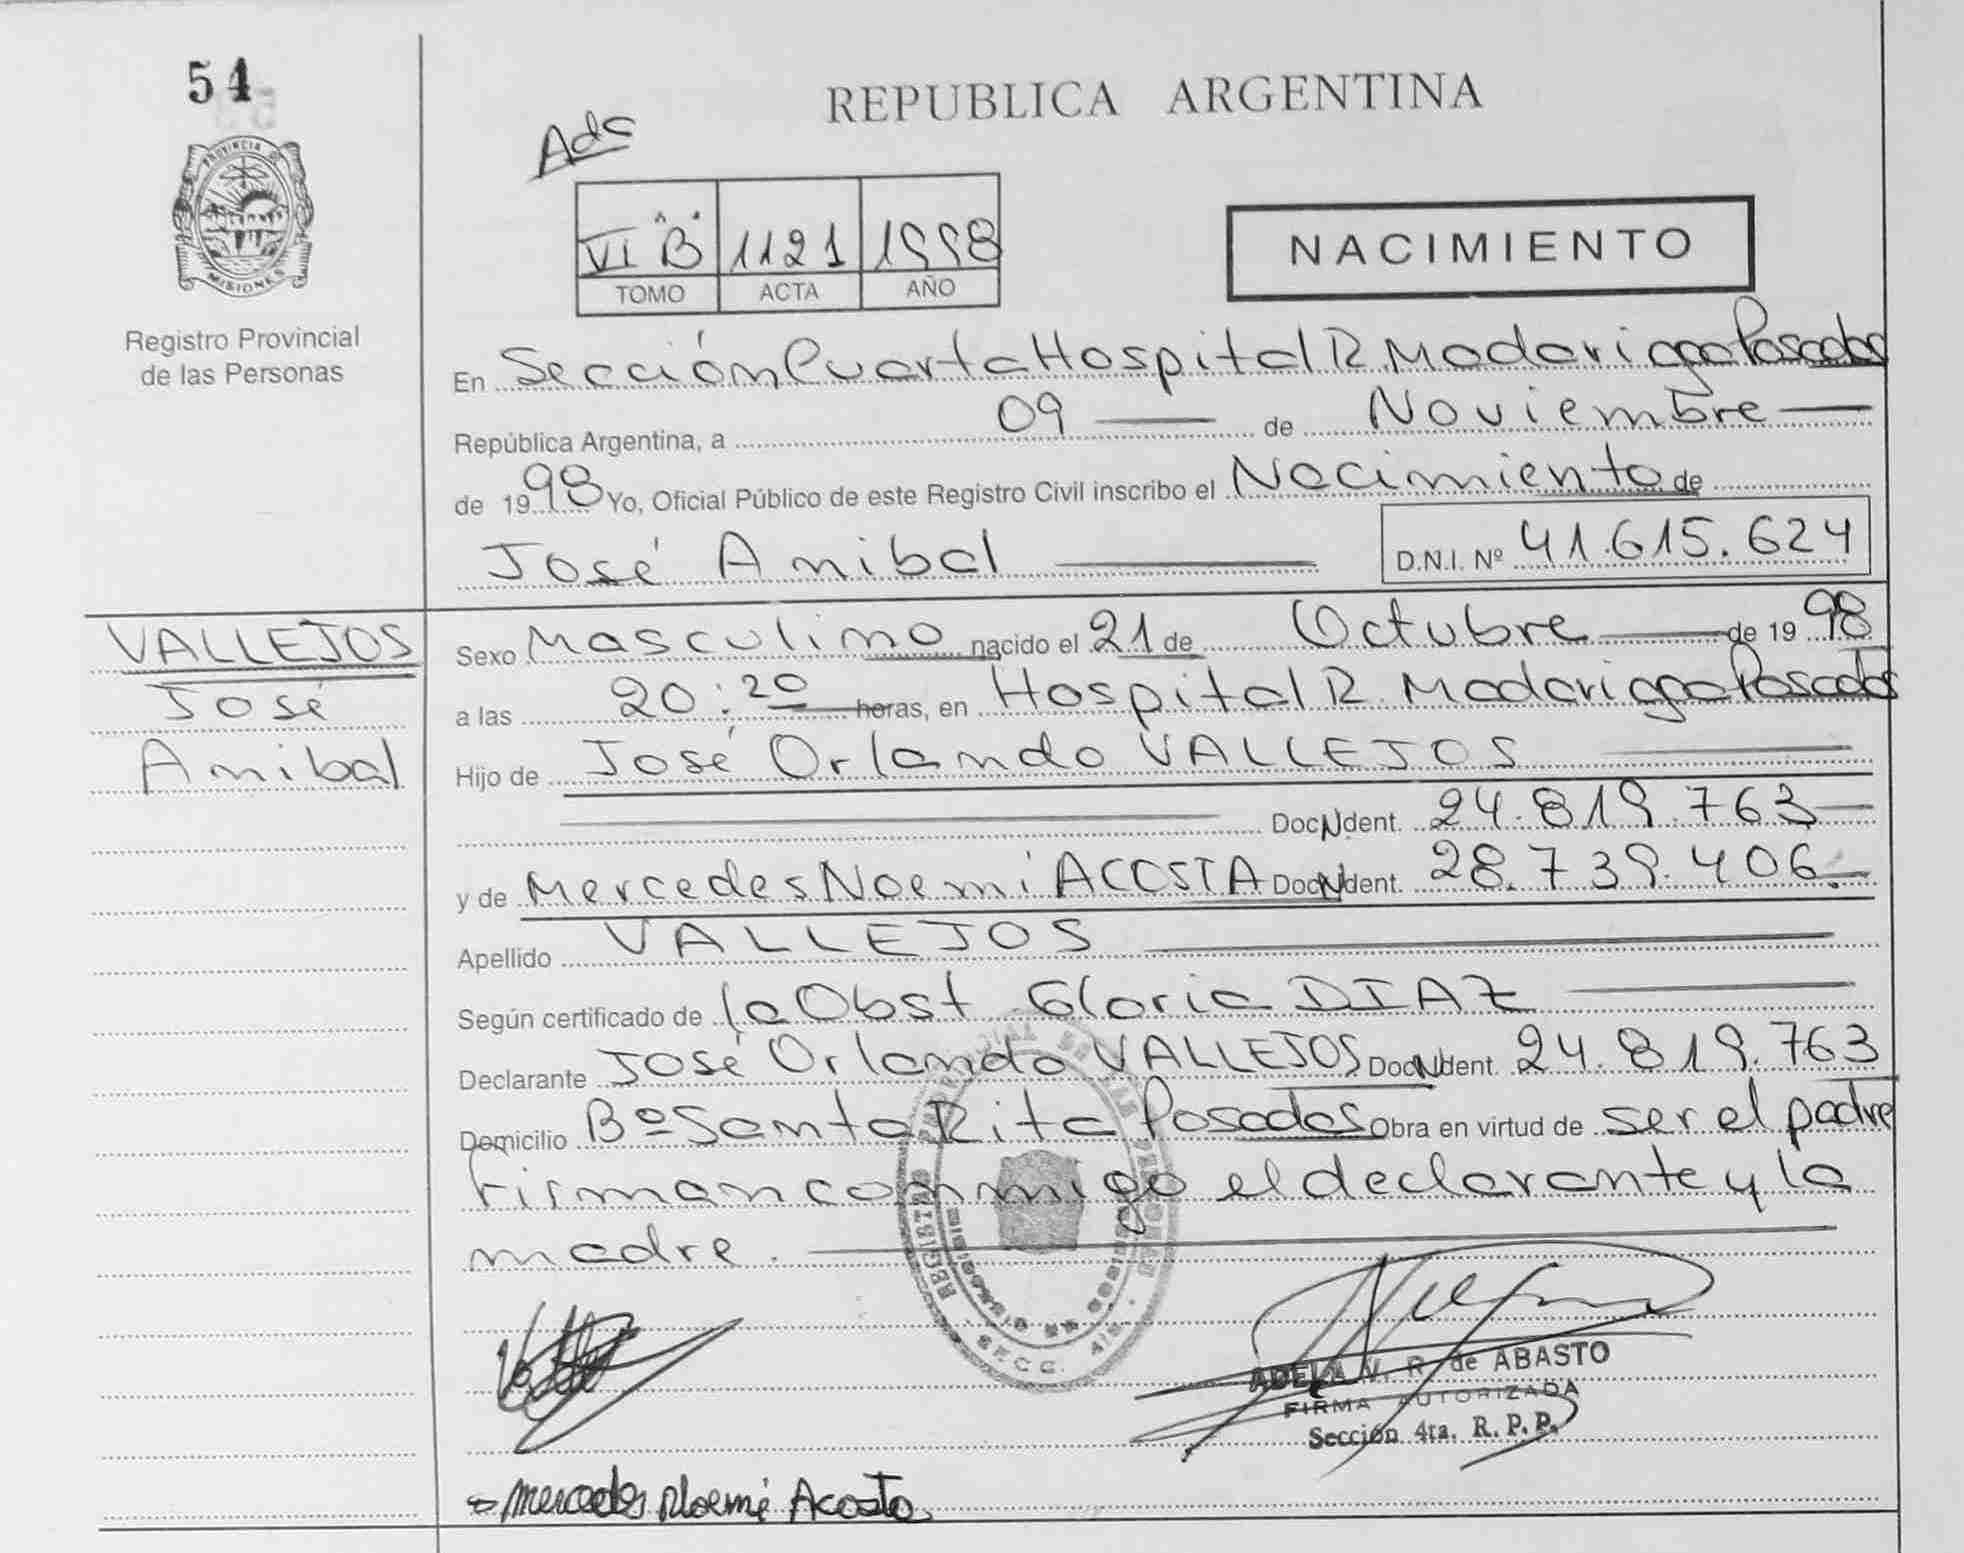 54
REPUBLICA ARGENTINA
Adc
PROVINCIA DE MISIONES
VI "B" 1121 1998
TOMO ACTA AÑO
NACIMIENTO
Registro Provincial
de las Personas
En Sección Cuarta Hospital R. Madariaga Posadas
República Argentina, a 09 de Noviembre
de 1998 Yo, Oficial Público de este Registro Civil inscribo el Nacimiento de
José Anibal D.N.I. Nº 41.615.624
VALLEJOS
José
Anibal
Sexo Masculino nacido el 21 de Octubre de 1998
a las 20:20 horas, en Hospital R. Madariaga Posadas
Hijo de José Orlando VALLEJOS
Doc. Ident. 24.819.763
y de Mercedes Noemi ACOSTA Doc. Ident. 28.739.406.
Apellido VALLEJOS
Según certificado de la Obst Gloria DIAZ
Declarante José Orlando VALLEJOS Doc. Ident. 24.819.763
Domicilio Bº Santa Rita Posadas Obra en virtud de ser el padre
Firman conmigo el declarante y la
madre.
ADELA V. R. de ABASTO
FIRMA AUTORIZADA
Sección 4ta. R. P. P.
Mercedes Noemi Acosta